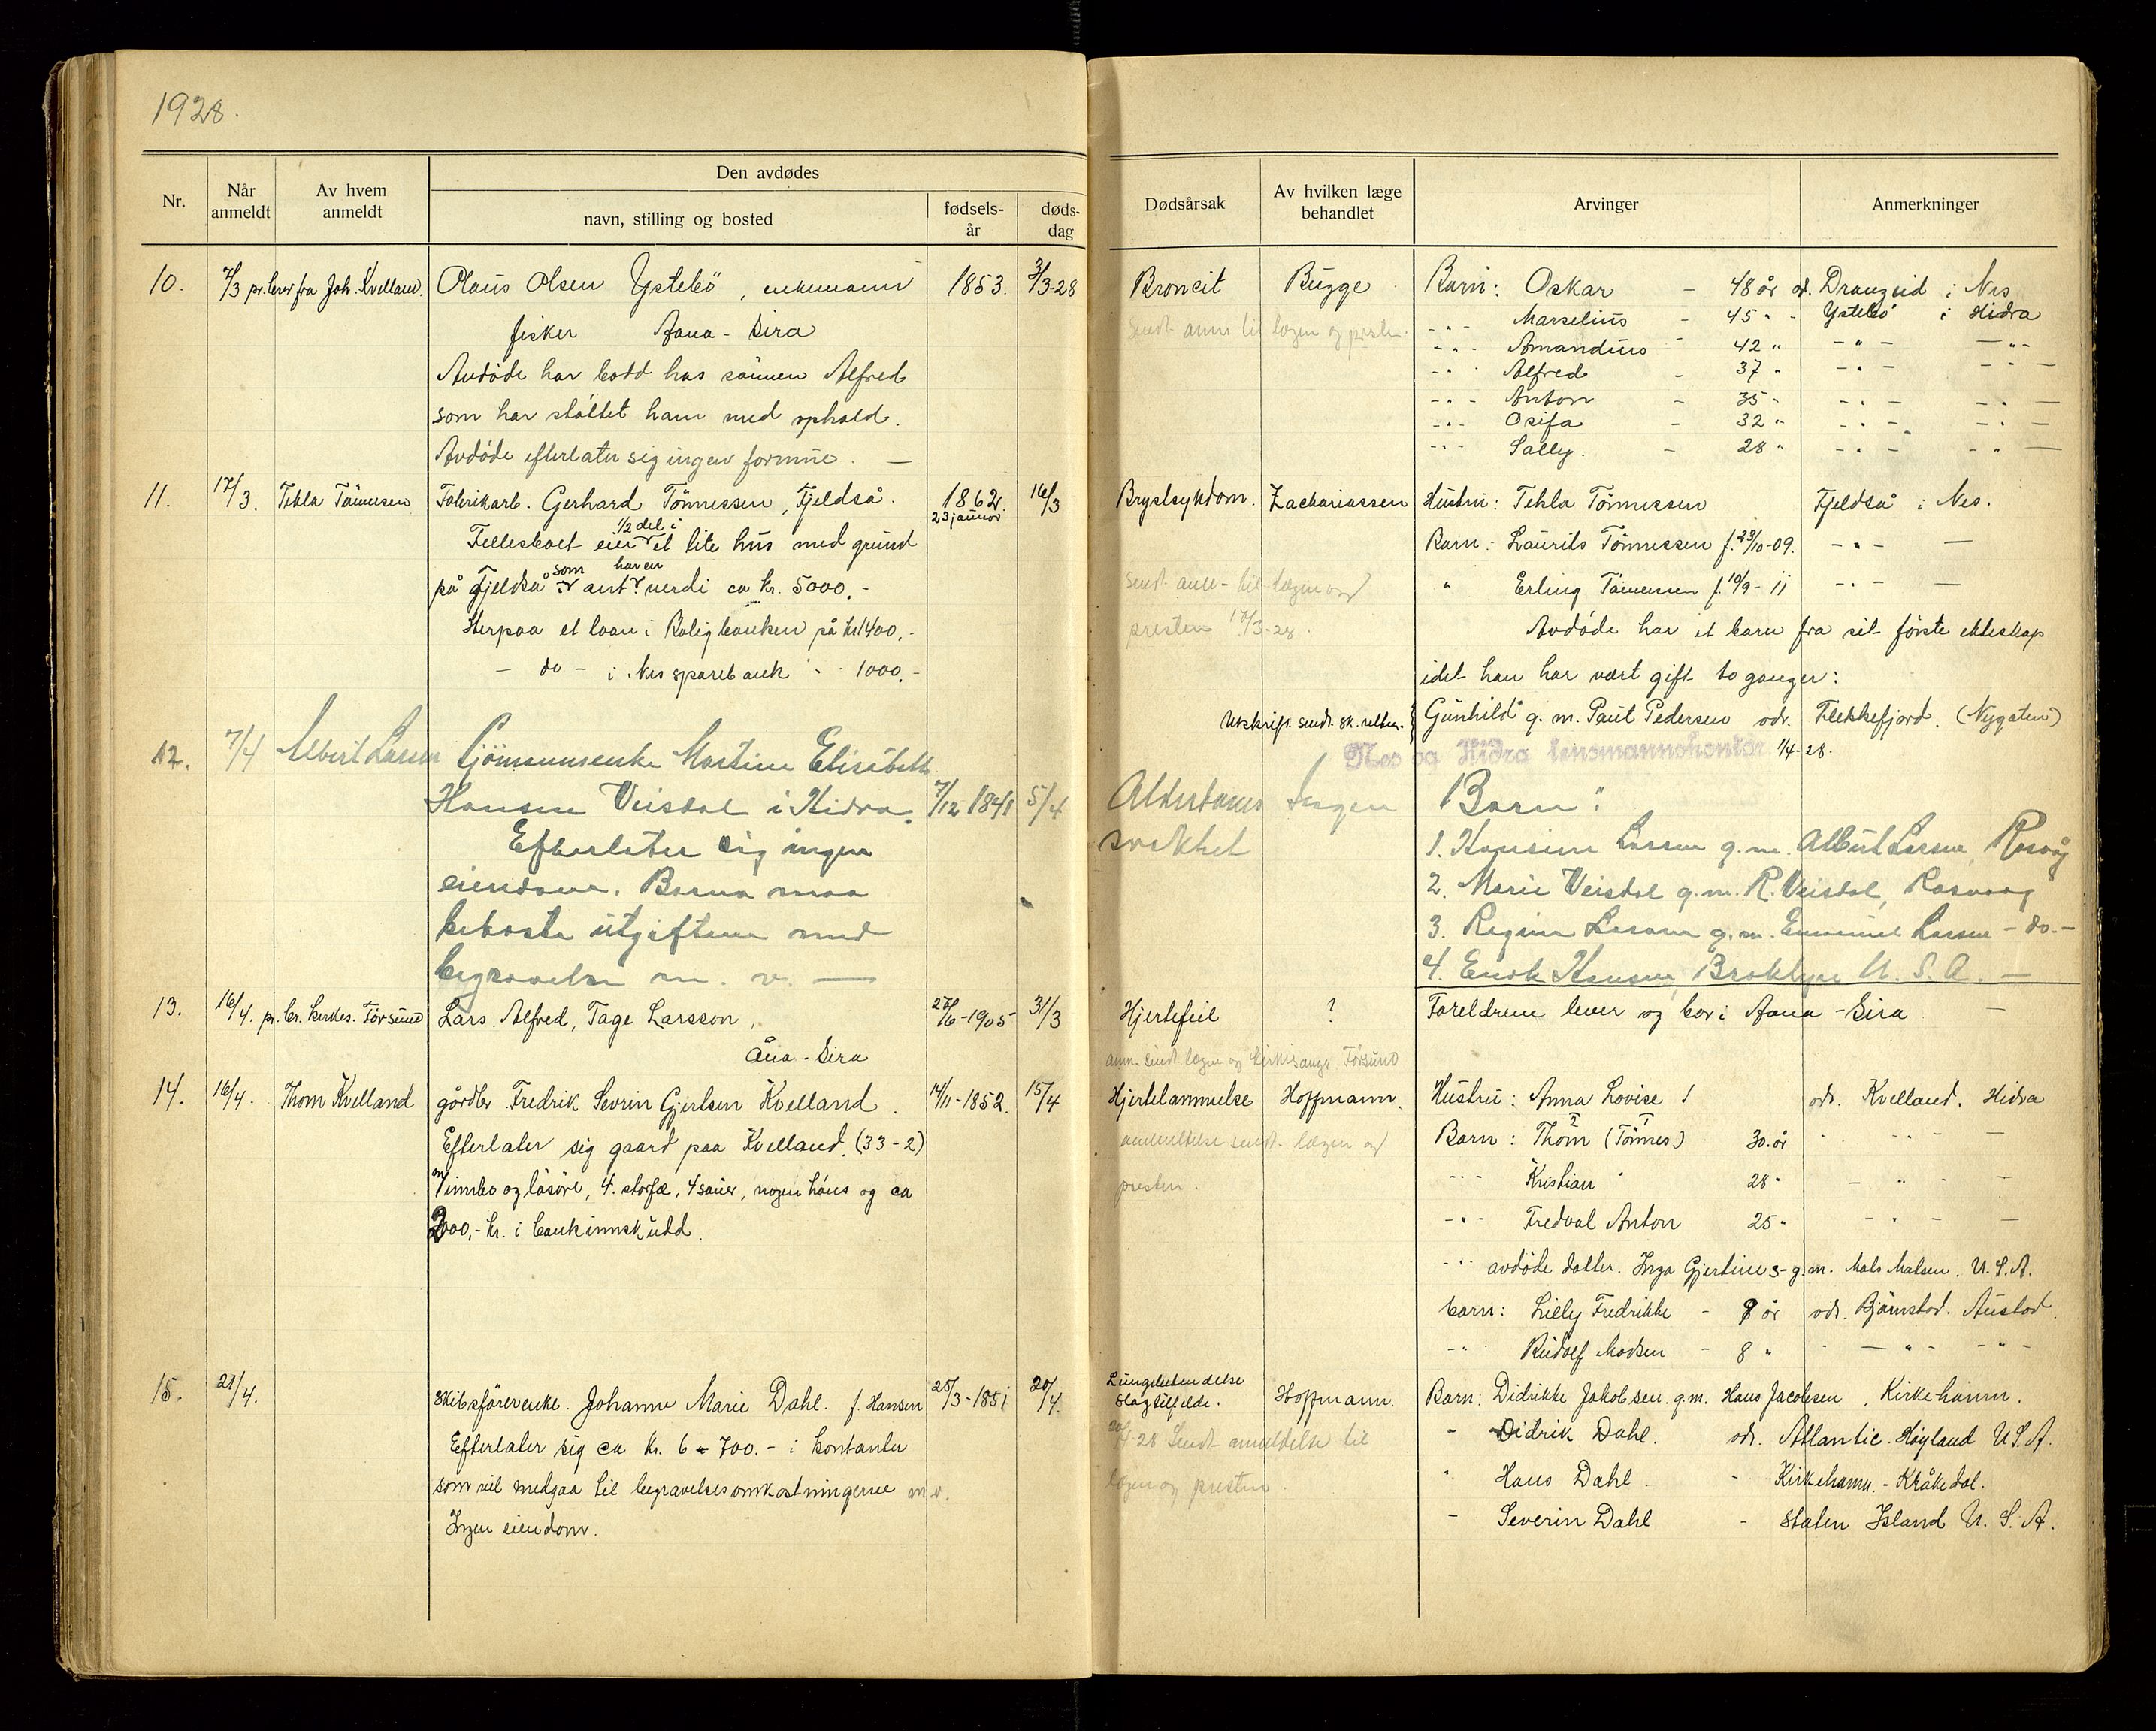 1928.
Nr.
Når anmeldt
Av hvem anmeldt
Den avdødes
navn, stilling og bosted
fødsels-år
døds-dag
Dødsårsak
Av hvilken læge behandlet
Arvinger
Anmerkninger
10. 7/3 pr. brev fra Joh. Kvelland. Olaus Olsen Ystebö, enkemann 1853. 3/3-28 Broncit Bugge Barn: Oskar - 48 år od. Drangeid i Nes
fisker Aana-Sira sendt anm. til lægen og presten. -"- Marselius - 45 " - Ystebö i Hidra
-"- Amandius - 42 " -"- -"-
Avdöde har bodd hos sönnen Alfred -"- Alfred - 37 " -"- -"-
som har stöttet ham med ophold. -"- Anton - 35 " -"- -"-
-"- Osifa - 32 " -"- -"-
Avdöde efterlater sig ingen formue. — -"- Sally. - 28 " -"- -"-
11. 17/3. Tekla Tönnesen Fabrikarb. Gerhard Tönnessen, Fjeldså. 1862. 23 januar 16/3 Brystsykdom. Zachariassen Hustru: Tekla Tönnessen Fjeldså i Nes.
Fellesboet eier 1/2 del i et lite hus med grund Barn: Laurits Tönnessen f. 23/10-09. -"- —
på Fjeldså som har en ant. verdi ca kr. 5000.- sendt anm- til lægen og " Erling Tönnessen f. 10/9-11 -"- —
Herpaa et laan i Boligbanken på kr 1400.- presten 17/3-28. Avdöde har et barn fra sit förste ekteskap
- do - i Nes sparebank " " 1000.- idet han har vært gift to ganger:
Utskrift sendt sk.retten. Gunhild g. m. Paul Pedersen ods. Flekkefjord. (Nygaten)
Nes og Hidra lensmannskontor 1/4-28.
12. 7/4 Albert Larsen Sjömannsenke Martine Elisabeth
Hansen Veisdal i Hidra. 7/12 1841 5/4 Alderdoms Ingen Barn:
Efterlater sig ingen svekket 1. Hansine Larsen g.m. Albert Larsen, Rasvåg
eiendom. Barna maa 2. Marie Veisdal g.m. R. Veisdal, Rasvaag
bekoste utgiftene med 3. Regine Larsen g.m. Emanuel Larsen - do.-
begravelse m. v. — 4. Enok Hansen, Broklyn U. S. A. —
13. 16/4. pr. br. kirkes. Försund Lars Alfred, Tage Larsson, 26/6-1905 31/3 Hjertefeil ? Foreldrene lever og bor i Aana-Sira —
Åna-Sira anm. sendt lægen og kirkesanger Försund
14. 16/4. Thom Kvelland gårdbr Fredrik Sevrin Gjertsen Kvelland. 14/11-1852. 15/4 Hjertelammelse Hoffmann. Hustru: Anna Lovise ods. Kvelland. Hidra
Efterlater sig gaard paa Kvelland. (33-2) anmeldelse sendt lægen og Barn: Thom (Tönnes) 30. år " " " —
m/innbo og lösöre, 4. storfæ, 4 sauer, nogen höns og ca presten. -"- Kristian 28 " - " - —
2000,- kr. i bankinnskudd. -"- Fredval Anton 25 " - " - —
-"- avdöde datter. Inga Gjertine g.m. Mals Malsen. U.S.A.
barn: Lilly Fredrikke - 9 år ods. Björnstad. Austad.
-"- Rudolf Madsen - 8 " - " - - " -
15. 21/4. Skibsförerenke. Johanne Marie Dahl. f. Hansen 25/3-1851 20/4. Lungebetendelse slagtilfelde. Hoffmann. Barn: Didrikke Jakobsen. g.m. Hans Jacobsen, Kirkehamn.
Efterlater sig ca kr. 6 a 700.- i kontanter 20/4-28 Sendt anmeldelse til " Didrik Dahl. ods. Atlantic. Høyland U.S.A.
som vil medgaa til begravelsesomkostningerne m.v. lægen og presten. " Hans Dahl. " Kirkehamn.-Kråkedal.
Ingen eiendom. - Severin Dahl - Staten Island U. S. A.